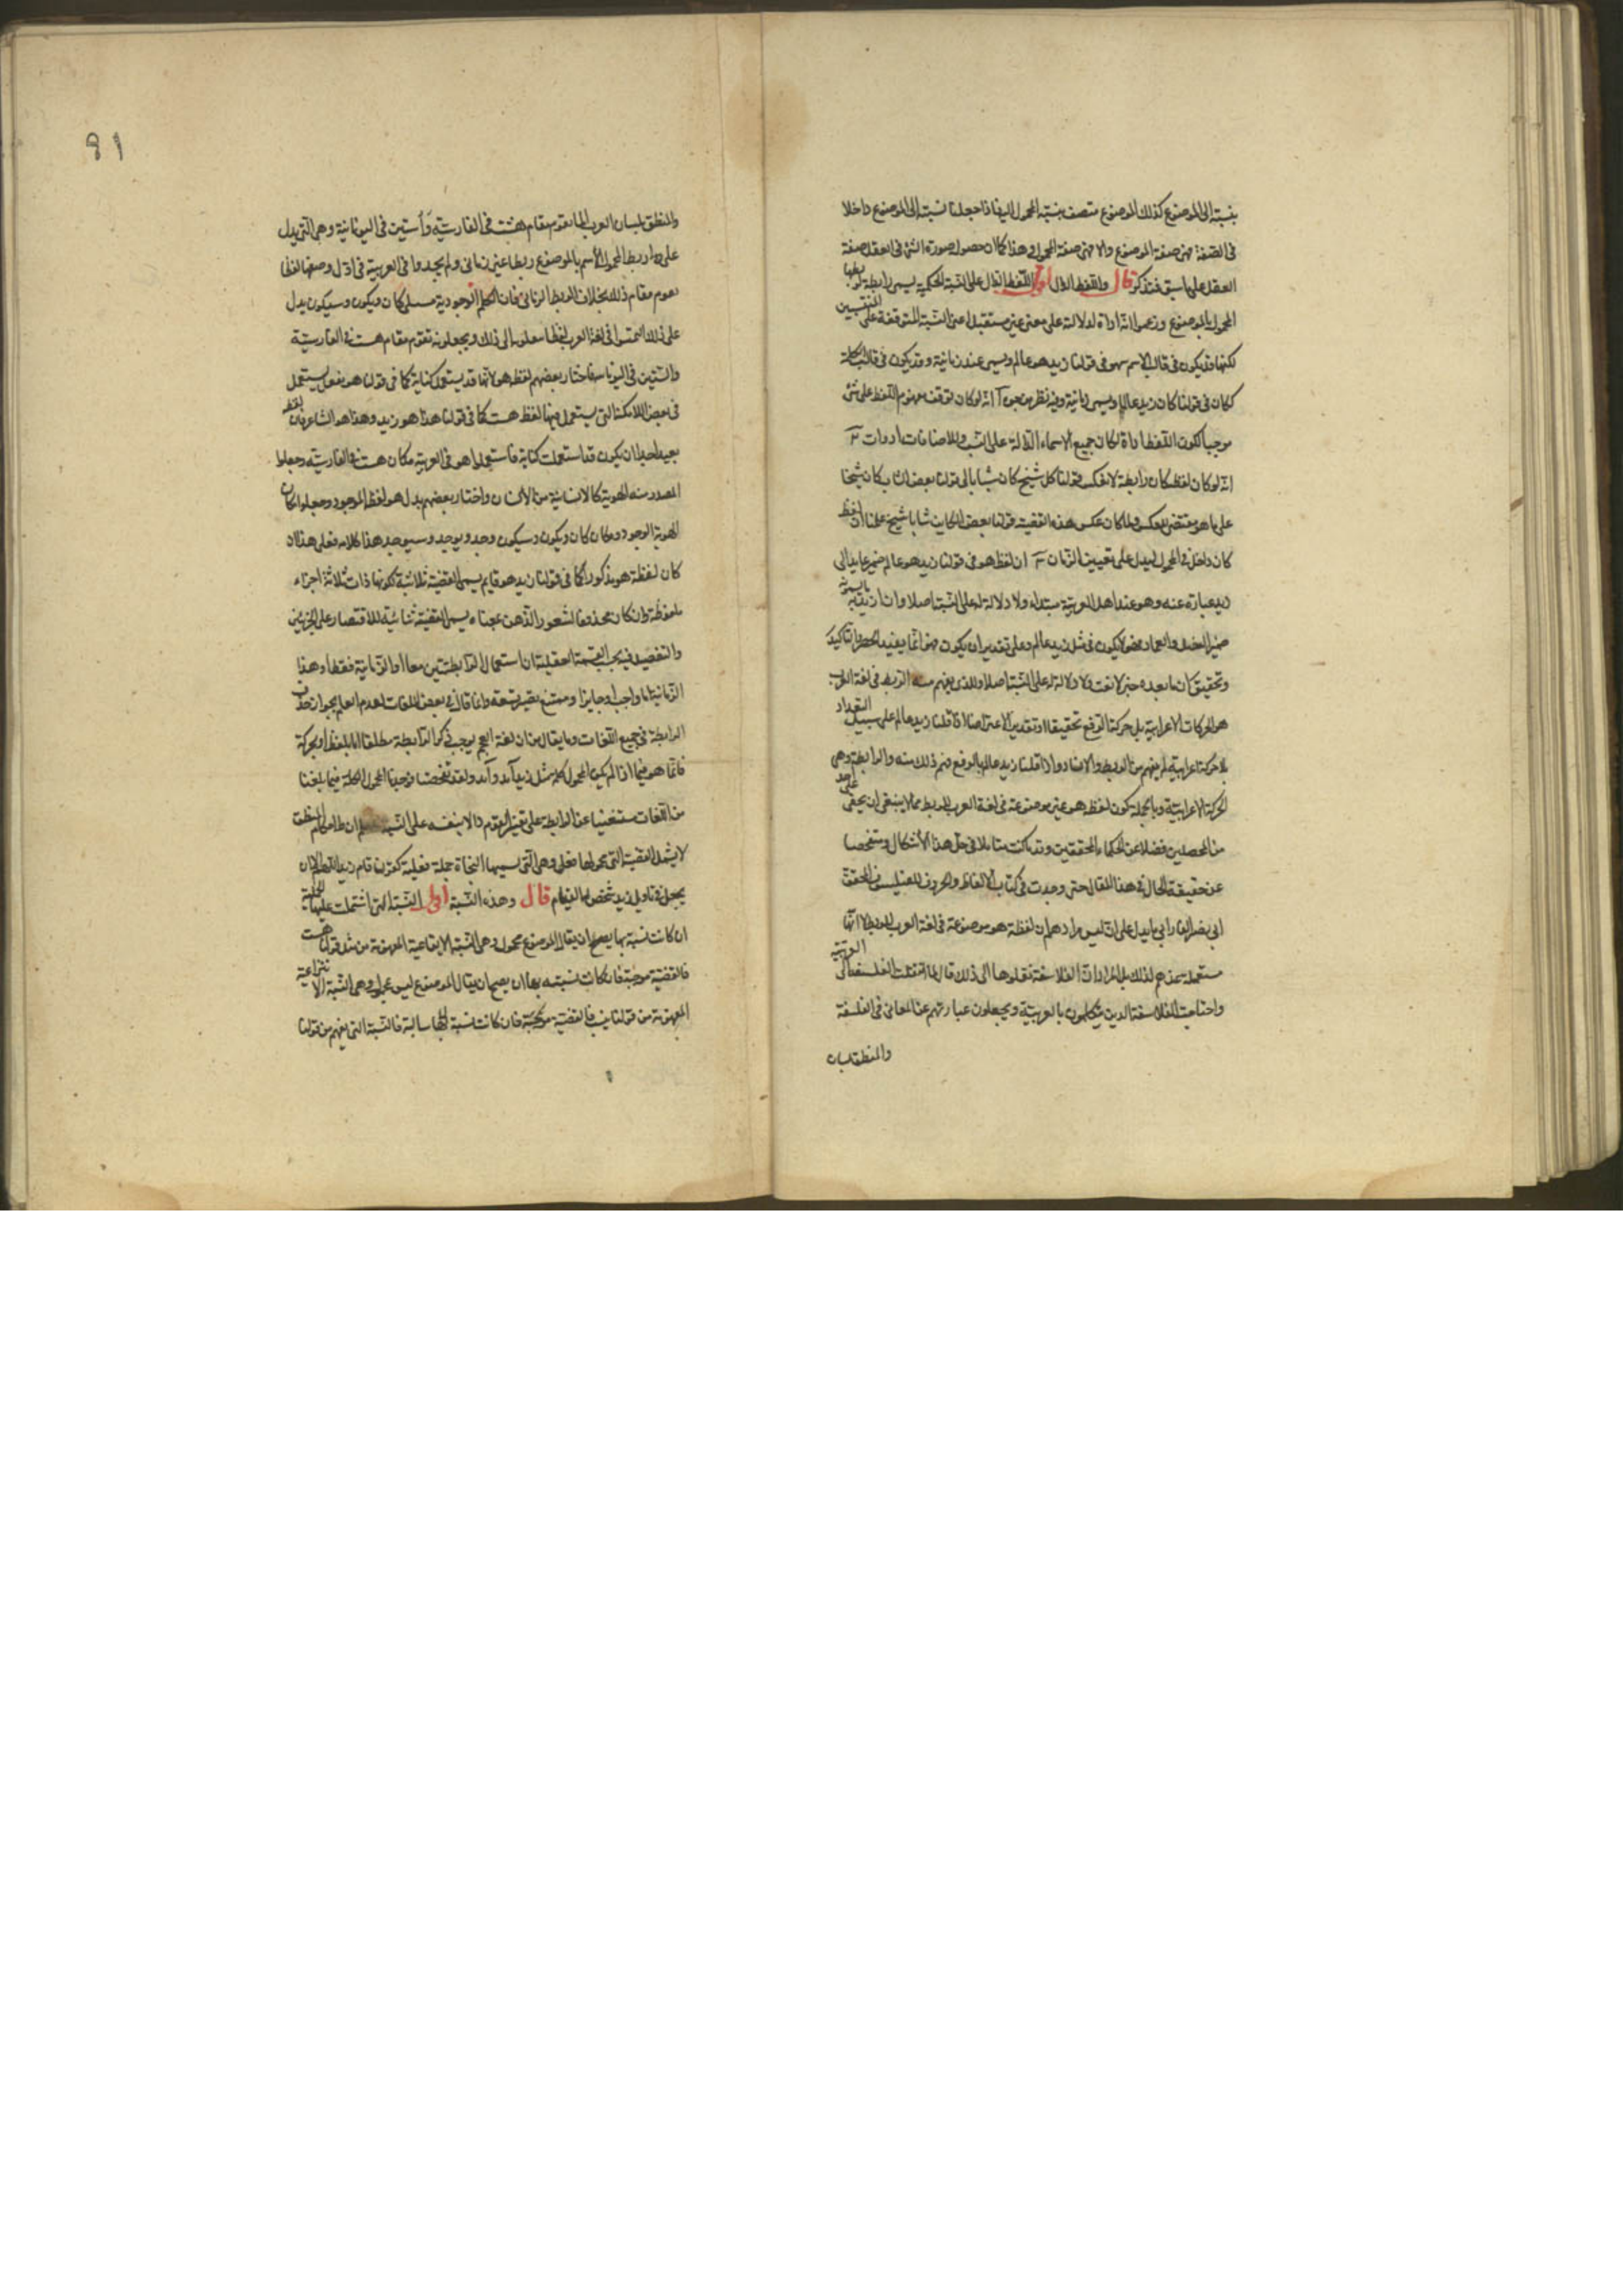 بنسبته الى الموضوع كذلك الموضوع متصف بنسبة المحمول اليه فاذا جعلنا نسبته الى الموضوع داخلا
فى الصفة فهى صفة الموضوع والا فهى صفة المحمول وهذا كما ان حصول صورة الشئ فى العقل صفة
العقل على ما سبق فتذكر قال واللفظ الدال اقول اللفظ الدال على النسبة الحكمية يسمى رابطة لربطها
المحمول بالموضوع وزعموا انه اداة لدلالته على معنى غير مستقبل اعنى النسبة المتوقفة على المنتسبين
لكنها قد يكون فى قالب الاسم كهو فى قولنا زيد هو عالم ويسمى غير زمانية وقد يكون فى قالب الكلمة
ككان فى قولنا كان زيد عالما ويسمى زمانية وفيه نظر من وجوه آ انه لو كان توقف مفهوم اللفظ على شئ
موجبا لكون اللفظ اداة لكان جميع الاسماء الدالة على النسب والاضافات ادوات
انه لو كان لفظ كان رابطة لانعكس قولنا كل شيخ كان شابا الى قولنا بعض الشاب كان شيخا
على ما هو مقتضى العكس ولما كان عكس هذه القضية قولنا بعض الكاين شابا شيخ علمنا ان لفظ
كان داخل فى المحمول ليدل على تعيين الزمان ان لفظ هو فى قولنا زيد هو عالم ضمير عايد الى
زيد عبارة عنه وهو عند اهل العربية مبتداء ولا دلالة له على النسبة اصلا وان ارى به ما يسمونه
ضمير الفصل والعماد فهو لا يكون فى مثل زيد عالم وعلى تقدير ان يكون فهو انما يفيد الحصر والتاكيد
وتحقيق ان ما بعده خبر لا نعت ولا دلالة له على النسبة اصلا والذى يفهم منه الربط فى لغة العرب
هو الحركات الاعرابية بل حركة الرفع تحقيقا او تقديرا لا غير لانا اذا قلنا زيد عالم على سبيل التعداد
بلا حركة اعرابية لم يفهم من الربط والاسناد واذا قلنا زيد عالم بالرفع فهم ذلك منه والرابطة هى
الحركة الاعرابية وبالجملة كون لفظ هو غير موضوعة فى لغة العرب للربط مما لا ينبغى ان يخفى على احد
من المحصلين فضلا عن الحكماء المحققين وقد كنت متاملا فى حل هذا الاشكال ومتفحصا
عن حقيقة الحال فى هذا المقال حتى وجدت فى كتاب الالفاظ والحروف للفيلسوف المحقق
ابى نصر الفارابى ما يدل على ان ليس مرادهم ان لفظة هو موضوعة فى لغة العرب للربط لا انها
مستعملة عندهم لذلك بل المراد ان الفلاسفة نقلوها الى ذلك قال لما انتقلت الفلسفة الى العربية
واحتاجت الفلاسفة الذين يتكلمون بالعربية ويجعلون عبارتهم عن المعانى فى الفلسفة
والمنطق بلسان
91
والمنطق بلسان العرب لما يقوم مقام هست فى الفارسية واستين فى اليونانية وهى التى يدل
على ربط المحمول الاسم بالموضوع ربطا غير زمانى ولم يجدوا فى العربية فى اول وضعها لفظا
يقوم مقام ذلك بخلاف الربط الزمانى فان الكلم الوجودية مثل كان ويكون وسيكون يدل
على ذلك التمسوا فى لغة العرب لفظا ينقلونه الى ذلك ويجعلونه تقوم مقام هست فى الفارسية
واستين فى اليونانية فاختار بعضهم لفظ هو لانها قد يستعمل كناية كما فى قولنا هو يفعل يستعمل
فى بعض الامكنة التى يستعمل فيها لفظ هست كما فى قولنا هذا هو زيد وهذا هو الشاعر فان لفظ هو
بعيد جدا ان يكون قد استعملت كناية فاستعملوا هو فى العربية مكان هست فى الفارسية وجعلوا
المصدر منه الهوية كالانسانية من الانسان واختار بعضهم بدل هو لفظ الموجود وجعلوا مكان
الهوية الوجود ومكان كان ويكون وسيكون وجد ويوجد وسيوجد هذا كلامه فعلى هذا ان
كان لفظة هو مذكورا كما فى قولنا زيد هو قايم يسمى القضية ثلاثية لكونها ذات ثلاثة اجزاء
ملفوظة وان كان محذوفا لشعور الذهن بمعناه يسمى القضية ثنائية للاقتصار على الجزئين
والتفصيل فيه بحسب القسمة العقلية ان استعمال الرابطتين معا او الزمانية فقط او هذا
الزمانية اما واجب او جايز او ممتنع يصير تسعة وانما قال فى بعض اللغات لعدم العلم بجواز حذف
الرابطة فى جميع اللغات وما يقال من ان لغة العجم يوجب ذكر الرابطة مطلقا اما بلفظ او بحركة
فانما هو فيما اذا لم يكن المحمول كلمة مثل زيد آمد ولقد تفحصنا فوجدنا المحمول الكلمة فيما بلغنا
من اللغات مستغنيا عن الرابطة على تقدير التقدم والا بنفسه على النسبة ان ظاهر كلام المنطق
لا يشمل القضية التى محمولها فعل وهى التى يسميها النحاة جملة فعلية كقولنا قام زيد اللهم الا ان
يجعل فى تاويل زيد شخص له القيام قال وهذه النسبة اقول النسبة التى اشتملت عليها الحملية
ان كانت نسبة بها يصح ان يقال الموضوع محمول وهى النسبة الايقاعية المفهومة من مثل قولنا هست
فالقضية موجبة فان كانت نسبته بها ان يصح ان يقال الموضوع ليس بمحمول وهى النسبة الانتزاعية
المفهومة من قولنا نيست فالقضية سالبة فالنسبة التى يفهم من قولنا